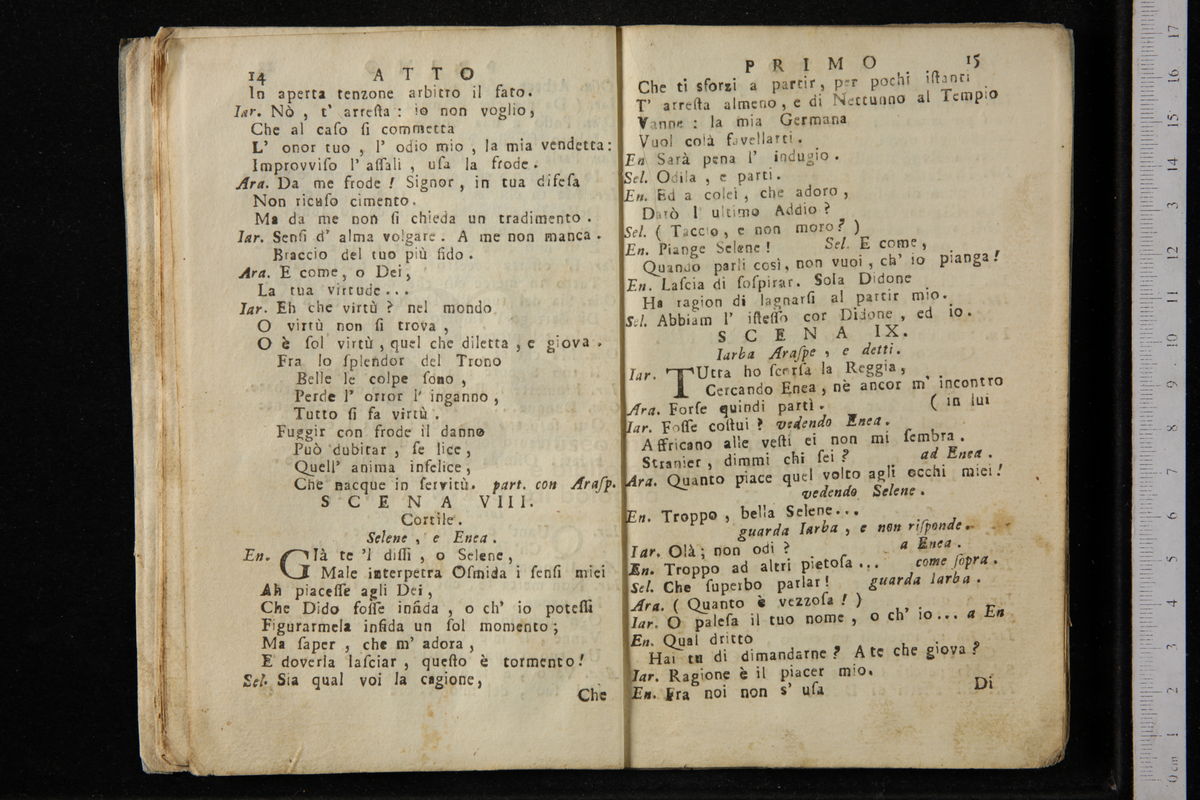 14 ATTO
In aperta tenzone arbitro il fato.
Iar. Nò, t' arreſta: io non voglio,
Che al caſo ſi commetta
L' onor tuo, l' odio mio, la mia vendetta:
Improvviſo l' aſſali, uſa la frode.
Ara. Da me frode! Signor, in tua difeſa
Non ricuſo cimento.
Ma da me non ſi chieda un tradimento.
Iar. Senſi d' alma volgare. A me non manca.
Braccio del tuo più fido.
Ara. E come, o Dei,
La tua virtude...
Iar. Eh che virtù? nel mondo
O virtù non ſi trova,
O è ſol virtù, quel che diletta, e giova.
Fra lo ſplendor del Trono
Belle le colpe ſono,
Perde l' orror l' inganno,
Tutto ſi fa virtù.
Fuggir con frode il danno
Può dubitar, ſe lice,
Quell' anima infelice,
Che nacque in ſervitù. part. con Araſp.
SCENA VIII.
Cortile.
Selene, e Enea.
En. GIà te 'l diſſi, o Selene,
Male interpetra Oſmida i ſenſi miei
Ah piaceſſe agli Dei,
Che Dido foſſe infida, o ch' io poteſſi
Figurarmela infida un ſol momento;
Ma ſaper, che m' adora,
E doverla laſciar, queſto è tormento!
Sel. Sia qual voi la cagione,
Che
PRIMO 15
Che ti sforzi a partir, per pochi iſtanti
T' arreſta almeno, e di Nettunno al Tempio
Vanne: la mia Germana
Vuol colà favellarti.
En Sarà pena l' indugio.
Sel. Odila, e parti.
En. Ed a colei, che adoro,
Darò l' ultimo Addio?
Sel. (Taccio, e non moro?)
En. Piange Selene! Sel. E come,
Quando parli così, non vuoi, ch' io pianga!
En. Laſcia di ſoſpirar. Sola Didone
Ha ragion di lagnarſi al partir mio.
Sel. Abbiam l' iſteſſo cor Didone, ed io.
SCENA IX.
Iarba Araſpe, e detti.
Iar. TUtta ho ſcorſa la Reggia,
Cercando Enea, nè ancor m' incontro
Ara. Forſe quindi partì. (in lui
Iar. Foſſe coſtui? vedendo Enea.
Affricano alle veſti ei non mi ſembra.
Stranier, dimmi chi ſei? ad Enea.
Ara. Quanto piace quel volto agli occhi miei!
vedendo Selene.
En. Troppo, bella Selene...
guarda Iarba, e non riſponde.
Iar. Olà; non odi? a Enea.
En. Troppo ad altri pietoſa... come ſopra.
Sel. Che ſuperbo parlar! guarda Iarba.
Ara. (Quanto è vezzoſa!)
Iar. O paleſa il tuo nome, o ch' io... a En
En. Qual dritto
Hai tu di dimandarne? A te che giova?
Iar. Ragione è il piacer mio.
En. Fra noi non s' uſa
Di
0 cm 1 2 3 4 5 6 7 8 9 10 11 12 13 14 15 16 17